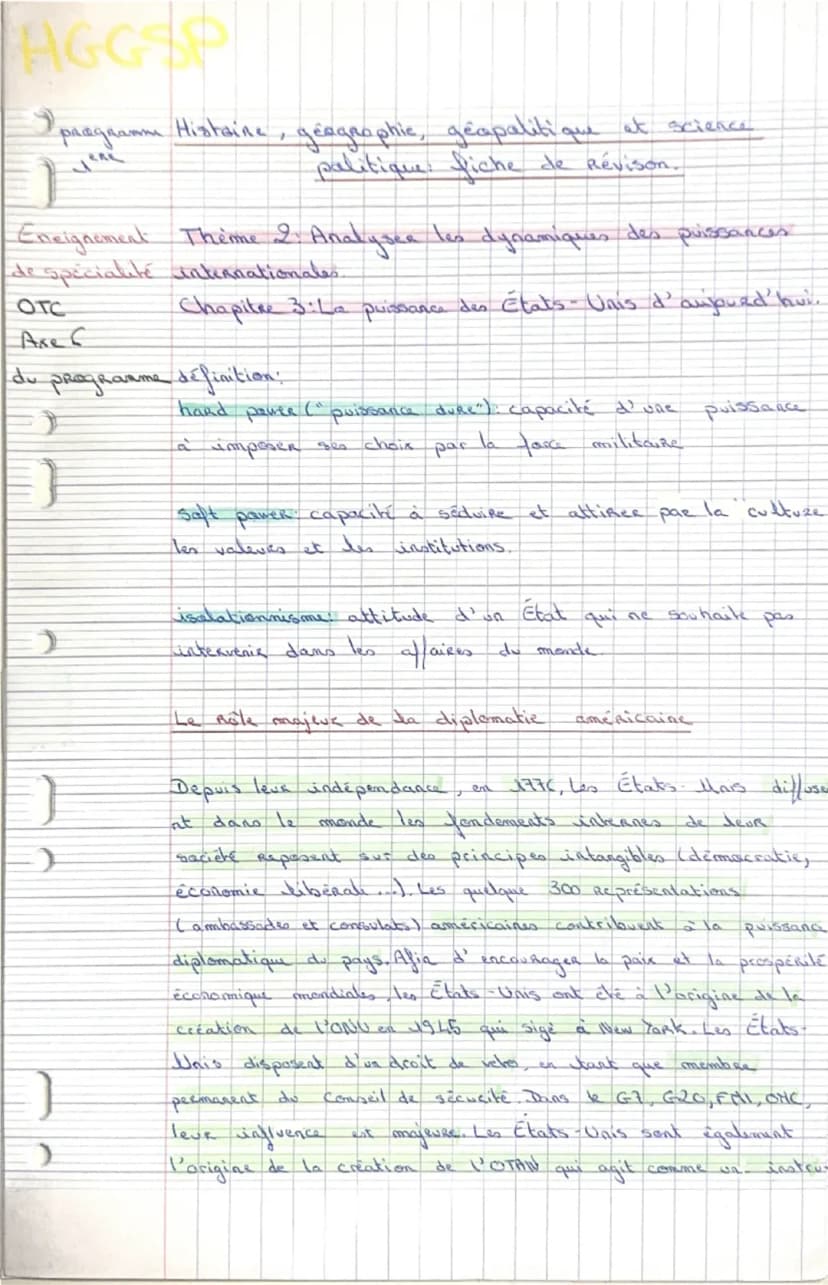 HGGSP
programme Histoire, géographie, géopolitique et science
1ère politique: fiche de révison.
Eneignement Thème 2: Analyser les dynamiques des puissances
de spécialité internationales.
OTC Chapitre 3: La puissance des États-Unis d'aujourd'hui.
Axe 6
du programme définition:
hard power ("puissance dure"): capacité d'une puissance
à imposer ses choix par la force militaire
soft power: capacité à séduire et attirer par la culture
les valeurs et les institutions.
isolationnisme: attitude d'un État qui ne souhaite pas
intervenir dans les affaires du monde.
Le rôle majeur de la diplomatie américaine
Depuis leur indépendance, en 1776, Les États-Unis diffuse
nt dans le monde les fondements internes de leur
société reposent sur des principes intangibles (démocratie,
économie libérale...). Les quelque 300 représentations
(ambassades et consulats) américaines contribuent à la puissanc
diplomatique du pays. Afin d'encourager la paix et la prospérité
économique mondiales, les États-Unis ont été à l'origine de la
création de l'ONU en 1945 qui sige à New York. Les États-
Unis disposent d'un droit de veto, en tant que membre
permanent du Conseil de sécurité. Dans le G7, G20, FMI, OMC,
leur influence est majeure. Les États-Unis sont également
l'origine de la création de l'OTAN qui agit comme un instru-